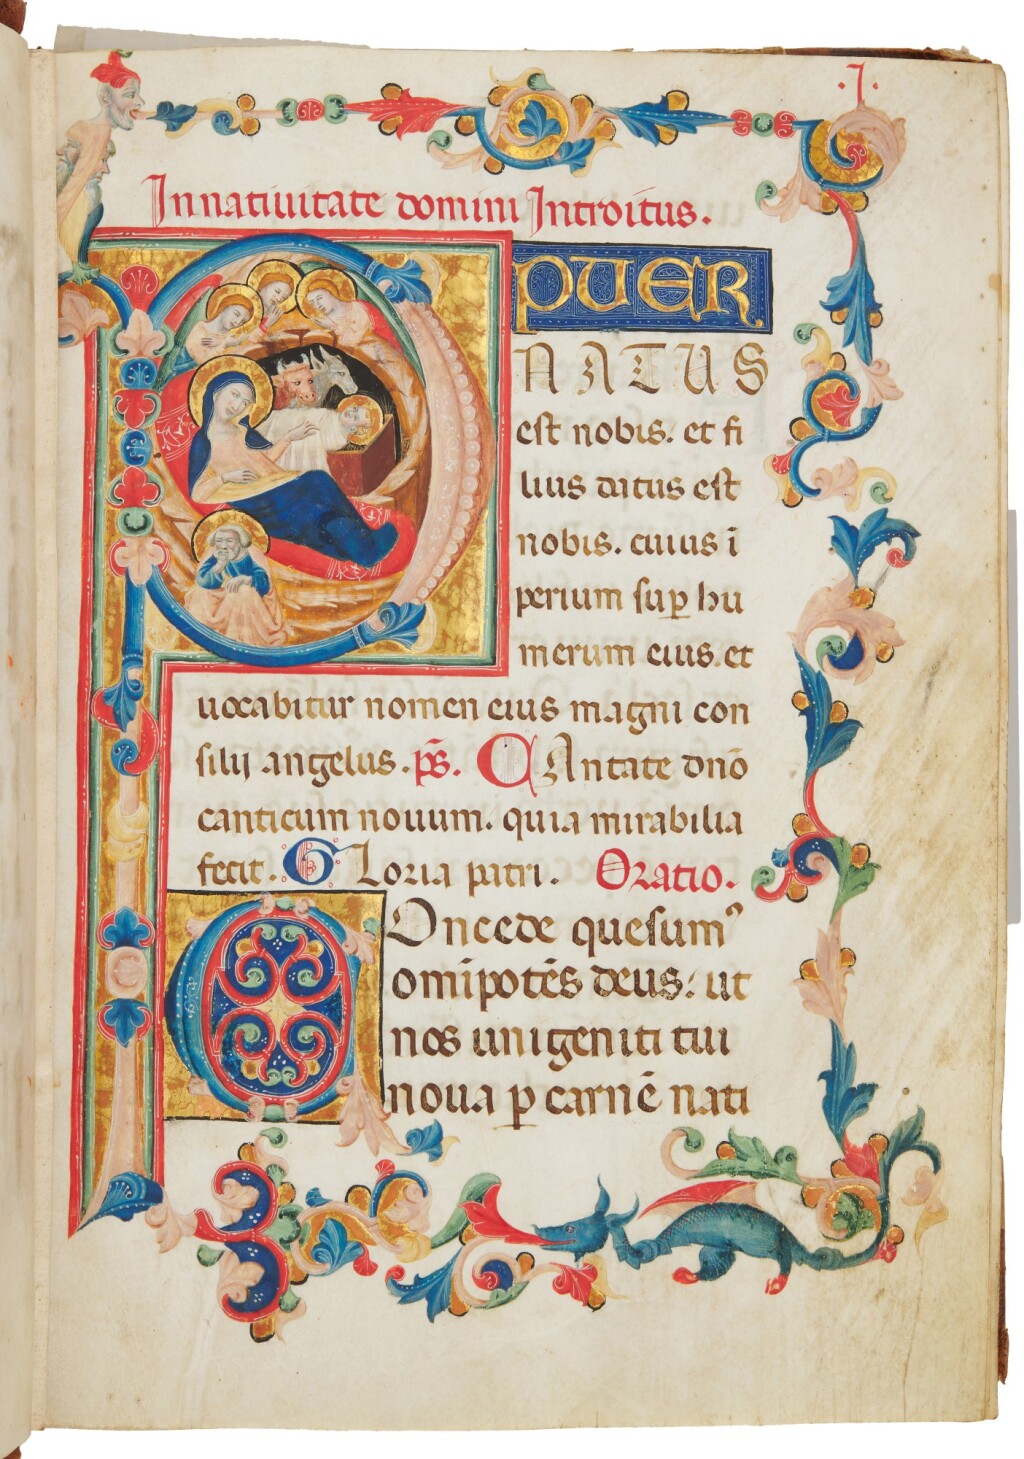 .I.
In natiuitate domini Introitus.
PUER
NATUS
est nobis. et fi
lius datus est
nobis. cuius ī
perium sup̱ hu
merum eius. et
uocabitur nomen eius magni con
silii angelus. p̄s. CAntate dn̄o
canticum nouum. quia mirabilia
fecit. GLoria patri. Oratio.
Oncede quesumꝰ
om̄ipotēs deus: ut
nos unigeniti tui
noua ꝑ carnē nati